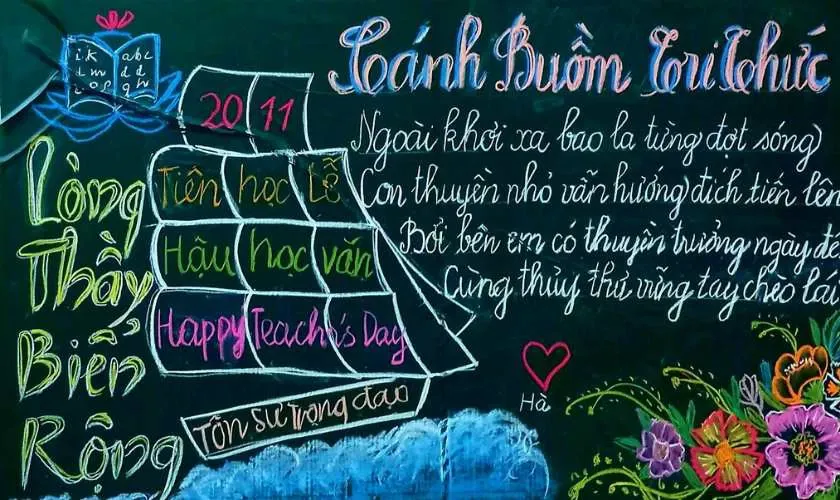 Cánh Buồm Tri Thức
i k abc
20 11
Lòng
Thầy
Biển
Rộng
Tiên học Lễ
Hậu học văn
Happy Teach's Day
Tôn sư trọng đạo
Ngoài khơi xa bao la từng đợt sóng
Con thuyền nhỏ vẫn hướng đích tiến lên
Bởi bên em có thuyền trưởng ngày
Cùng thủy thủ vững tay chèo
Hà